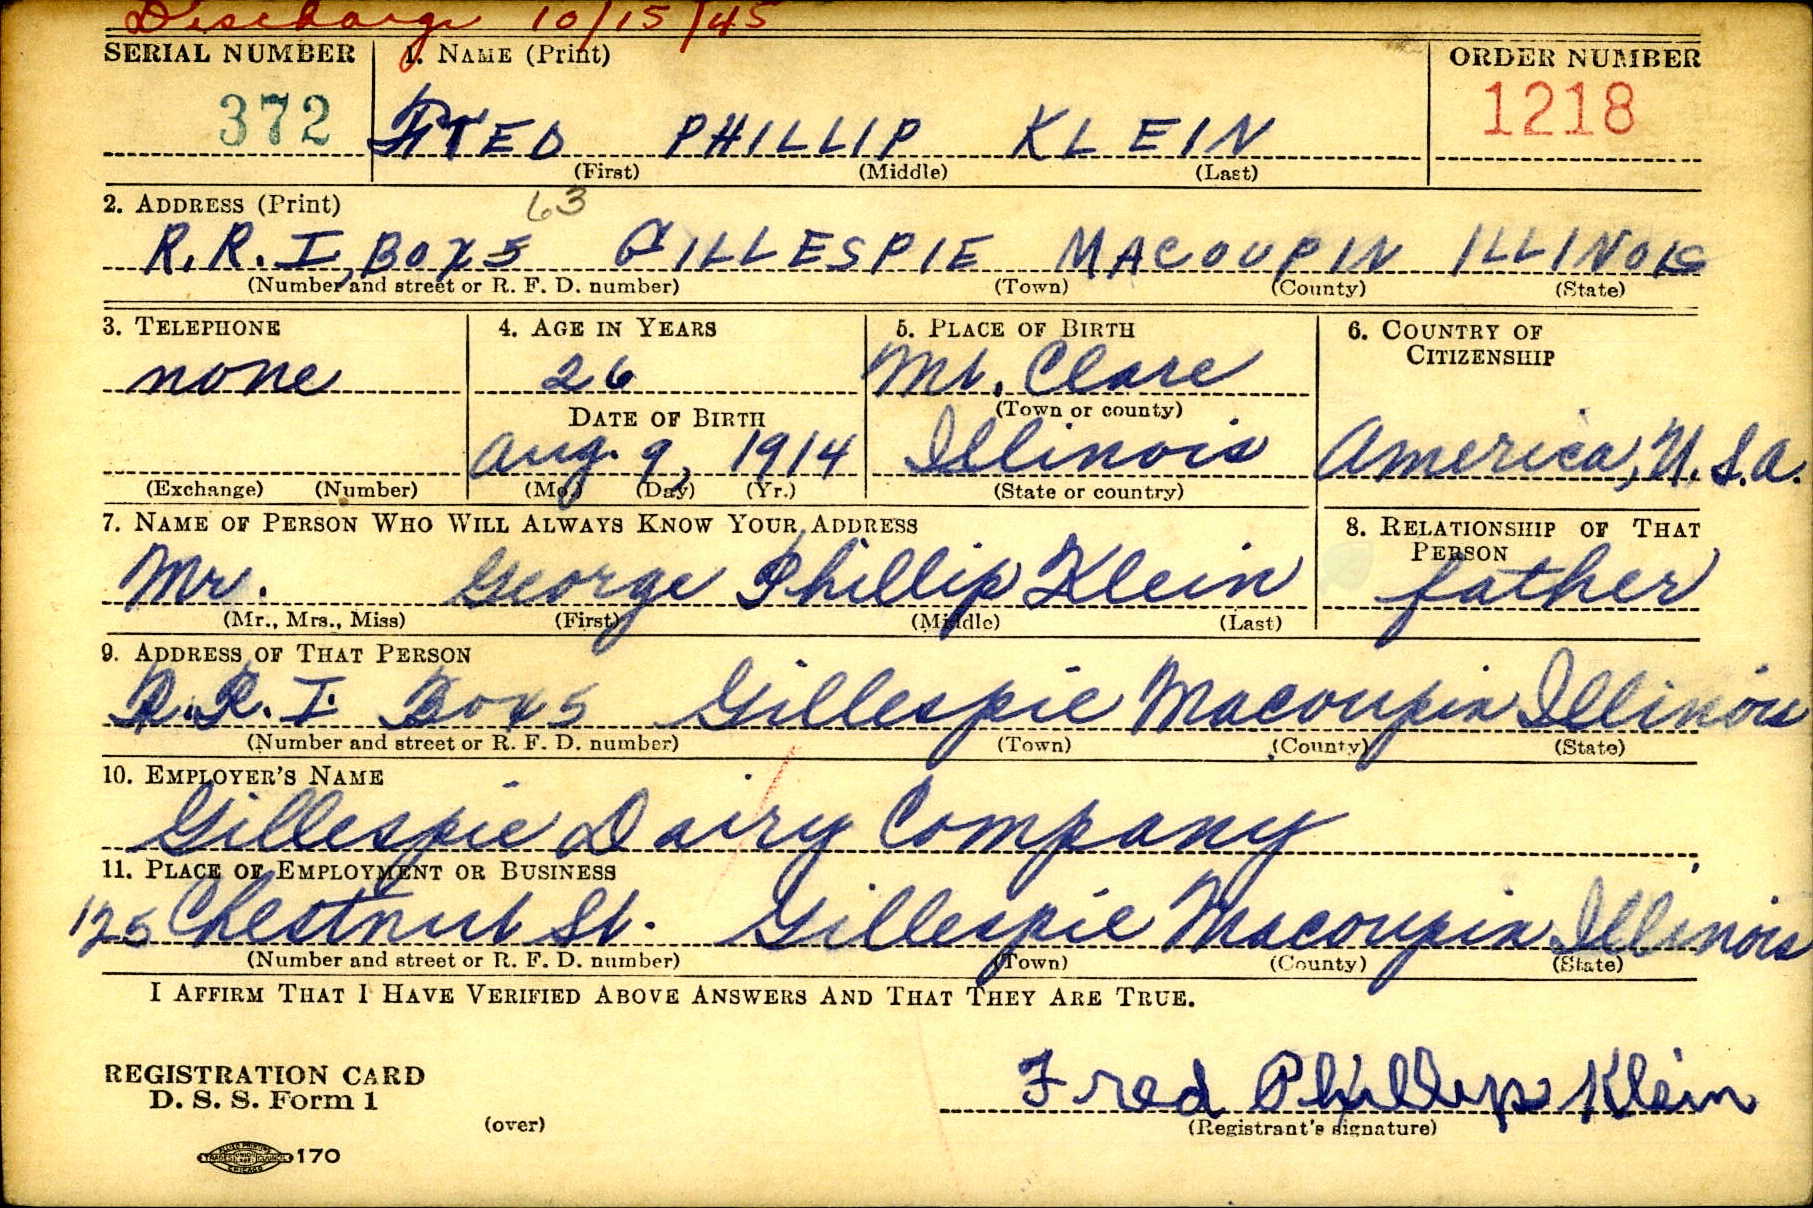 Discharge 10/15/45
SERIAL NUMBER 1. NAME (Print) ORDER NUMBER
372 FRED PHILLIP KLEIN 1218
(First) (Middle) (Last)
2. ADDRESS (Print) 63
R.R. I, BOX 5 GILLESPIE MACOUPIN ILLINOIS
(Number and street or R. F. D. number) (Town) (County) (State)
3. TELEPHONE 4. AGE IN YEARS 5. PLACE OF BIRTH 6. COUNTRY OF CITIZENSHIP
none 26 Mt. Clare
DATE OF BIRTH (Town or county)
Aug. 9, 1914 Illinois America, U.S.A.
(Exchange) (Number) (Mo.) (Day) (Yr.) (State or country)
7. NAME OF PERSON WHO WILL ALWAYS KNOW YOUR ADDRESS 8. RELATIONSHIP OF THAT PERSON
Mr. George Phillip Klein father
(Mr., Mrs., Miss) (First) (Middle) (Last)
9. ADDRESS OF THAT PERSON
R.R. I. Box 5 Gillespie Macoupin Illinois
(Number and street or R. F. D. number) (Town) (County) (State)
10. EMPLOYER'S NAME
Gillespie Dairy Company
11. PLACE OF EMPLOYMENT OR BUSINESS
125 Chestnut St. Gillespie Macoupin Illinois
(Number and street or R. F. D. number) (Town) (County) (State)
I AFFIRM THAT I HAVE VERIFIED ABOVE ANSWERS AND THAT THEY ARE TRUE.
REGISTRATION CARD
D. S. S. Form 1
Fred Phillip Klein
(over) (Registrant's signature)
170